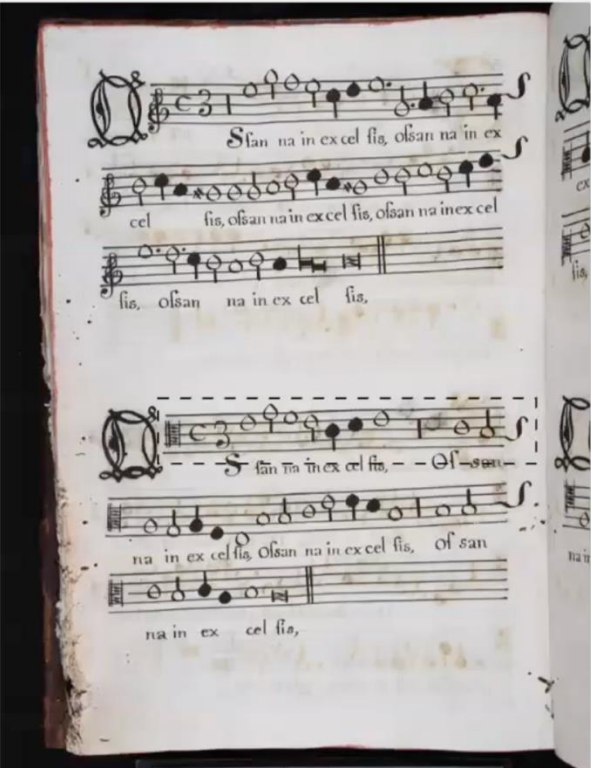 O Sſan na in ex cel ſis, oſsan na in ex
cel ſis, oſsan na in ex cel ſis, oſsan na in ex cel
ſis, oſsan na in ex cel ſis,
O S ſan na in ex cel ſis, Oſ san
na in ex cel ſis, Oſsan na in ex cel ſis, oſ san
na in ex cel ſis,
ex
ſis,
na in